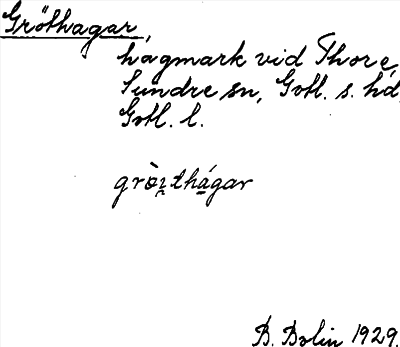 Gröthagar,
hagmark vid Thore,
Sundre sn, Gotl. s. hd,
Gotl. l.
grò̱ı̨thá̱gar
B. Bolin 1929.